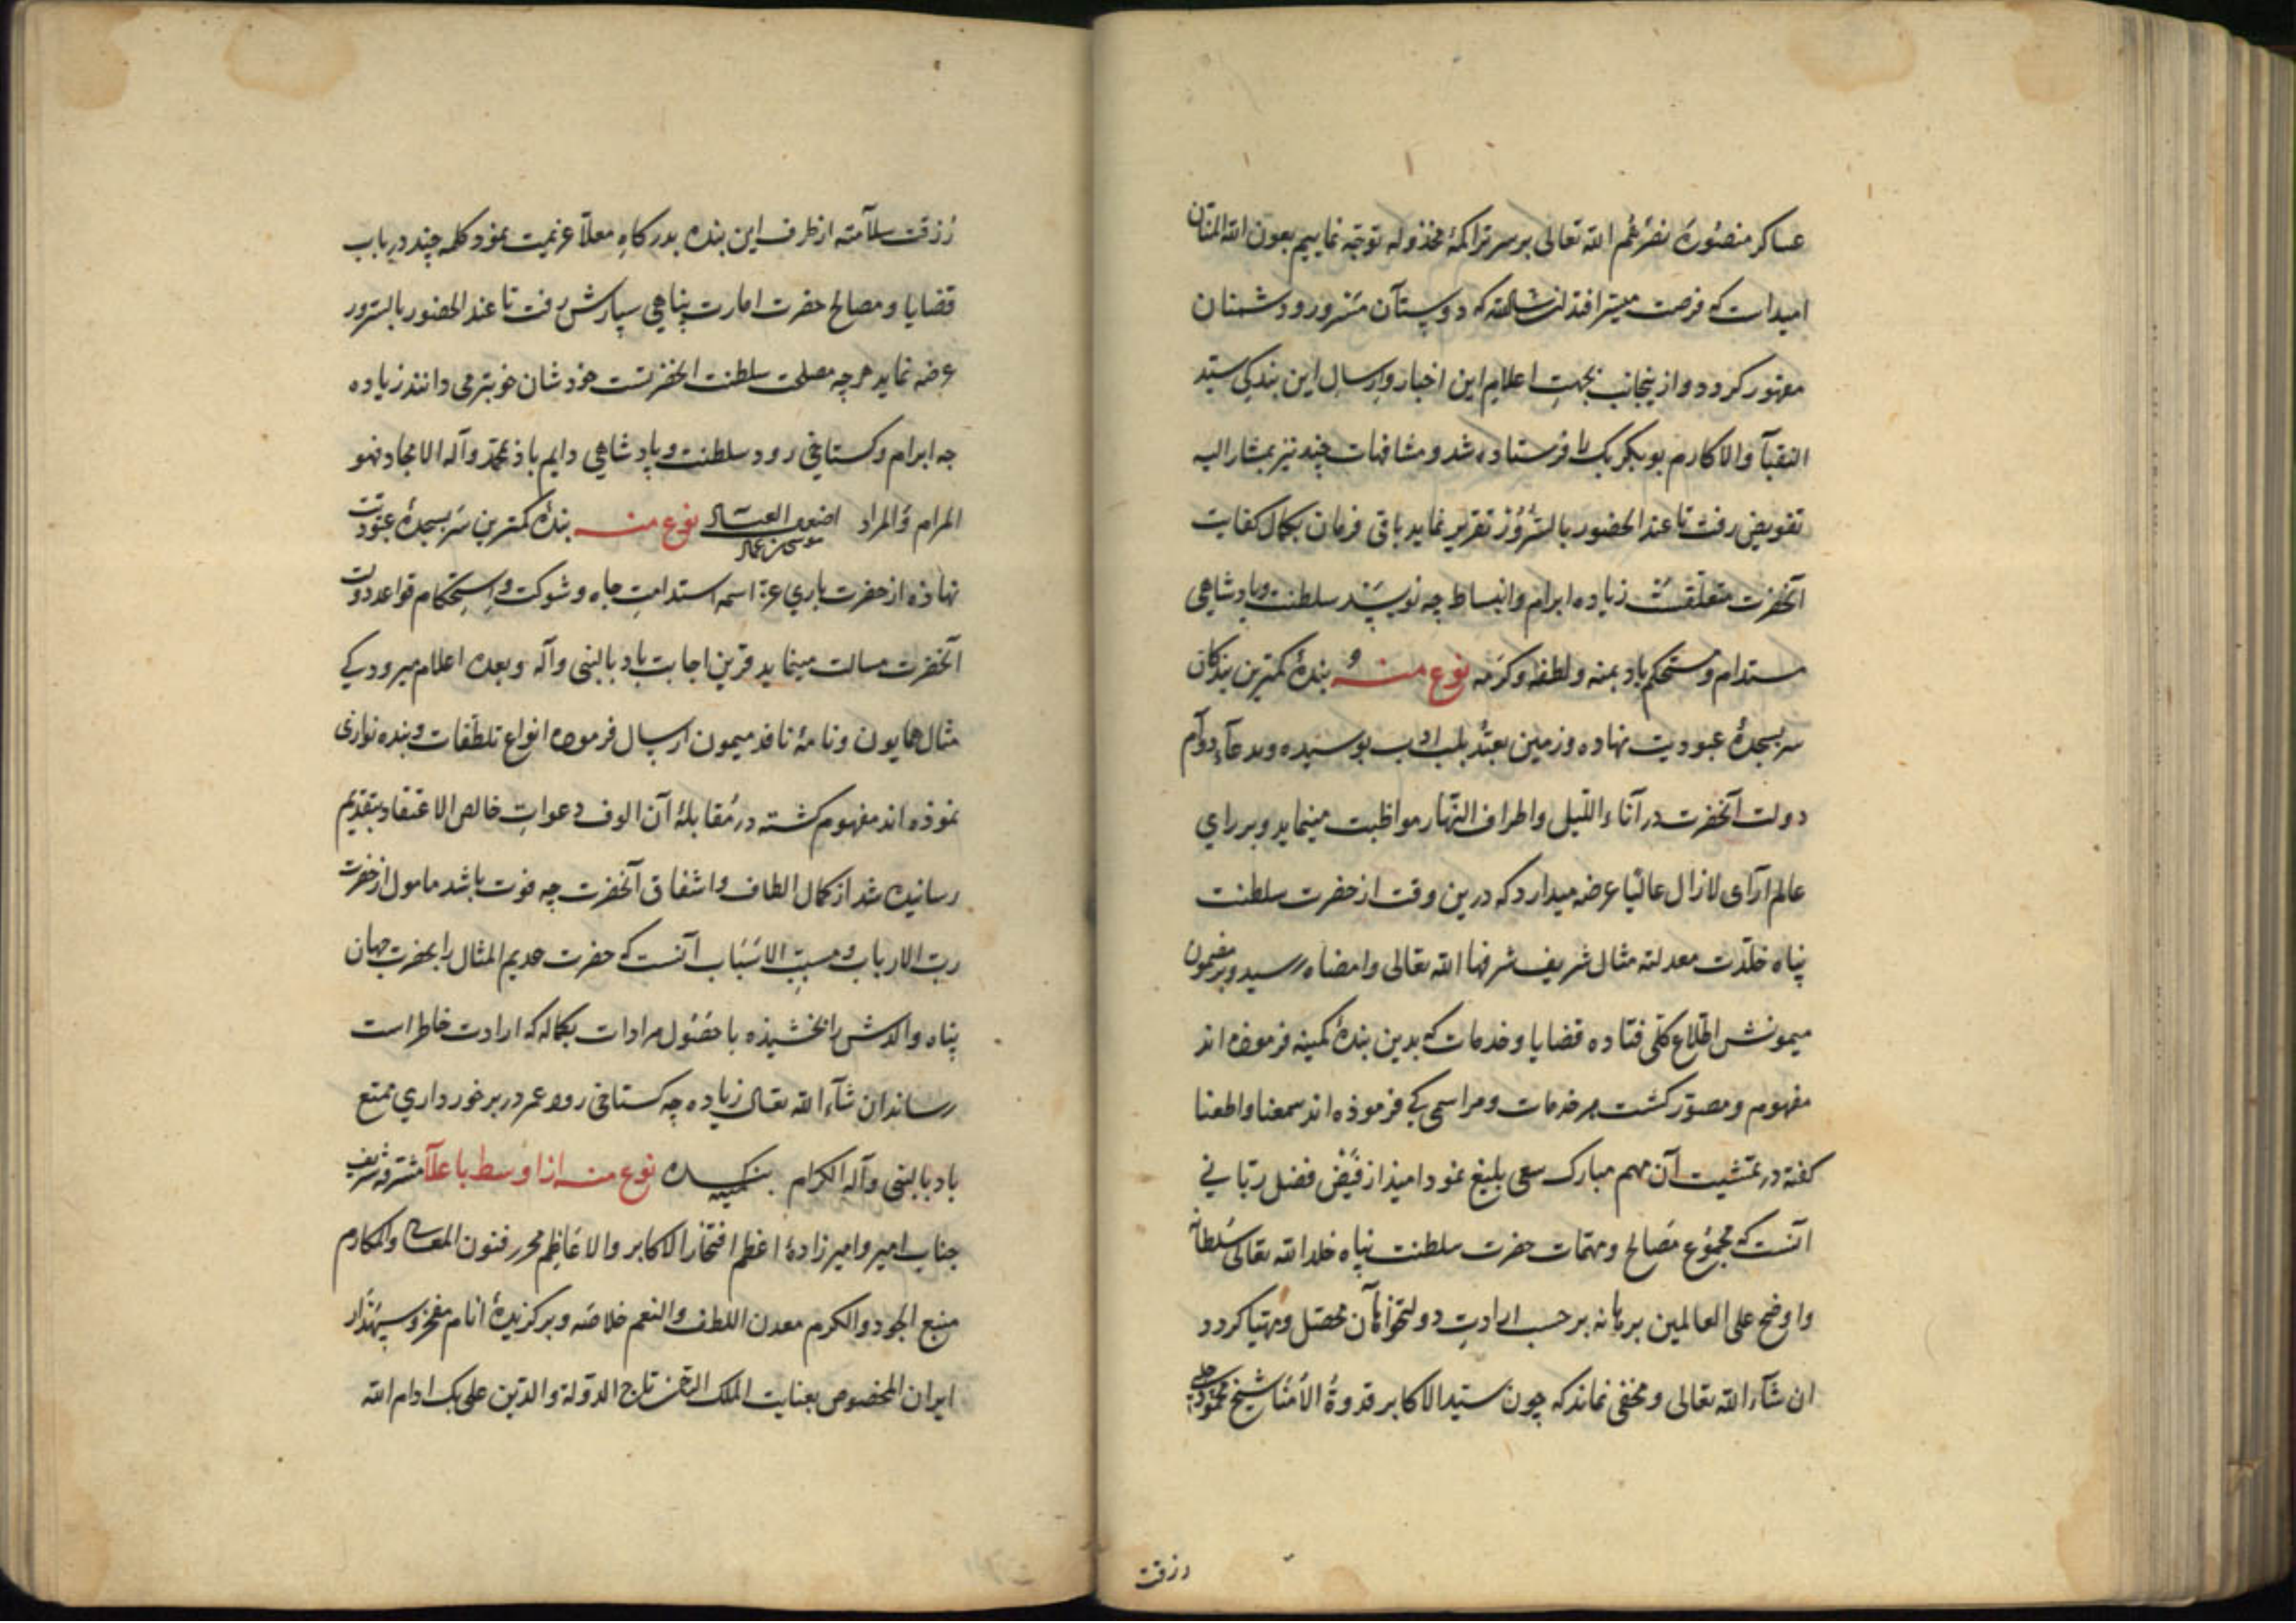 عساکر منصوره نصرهم الله تعالی بر سر تراکمهٔ مخذوله توجّه نماییم بعون الله المنّان
امیدات که فرصت میسّر افتد ان‌شاالله که دوستان مسرور و دشمنان
مقهور کردد و ازینجانب بجهتِ اعلام این اخبار و ارسالِ این بندکی سیّد
النقبآ والاکارم بوبکر بک را فرستاده شد و مشافهات چند نیز بمشار الیه
تفویض رفت تا عند الحضور بالسّرور تقریر نماید باقی فرمان بکمال کفایت
آنحضرت متعلّقست زیاده ابرام و انبساط چه نویسد سلطنت و پادشاهی
مستدام و مستحکم باد بمنه و لطفه و کرمه نوع منه بندهٔ کمترین بندکان
سر بسجدهٔ عبودیت نهاده و زمین تعبّد بلب ادب بوسیده و بدعآء دوام
دولت آنحضرت در آناء اللّیل و اطراف النّهار مواظبت مینماید و بر رای
عالم آرای لازال عالیًا عرضه میدارد که درین وقت از حضرت سلطنت
پناه خلّدت معدلته مثال شریف شرفها الله تعالی وامضاه رسید و بر مضمون
میمونش اطّلاع کلّی فتاده قضایا و خدمات که بدین بندهٔ کمینه فرموده اند
مفهوم و مصوّر کشت هر خدمات و مراسمی کی فرموذه اند سمعنا واطعنا
کفته در تمشیت آن مهم مبارک سعی بلیغ نمود امیذ از فیض فضل ربّانی
آنست که مجموع مصالح و مهمّات حضرت سلطنت پناه خلد الله تعالی سلطانه
واوضح علی العالمین برهانه بر حسب ارادتِ دولتخواهان محصّل و مهیّا کردد
ان شآء الله تعالی و مخفی نماند که چون سیّد الاکابر قدوة الاُمنا شیخ محمود
رزقت
رُزقت سلآمته از طرف این بنده بدرکاهِ معلّا عزیمت نمود کلمه چند در باب
قضایا و مصالح حضرت امارت پناهی سپارش رفت تا عند الحضور بالسّرور
عرضه نماید هرچه مصلحت سلطنت آنحضرتست خودشان خوبتر می دانند زیاده
چه ابرام و کستاخی رود سلطنت و پادشاهی دایم باذ بمحمّد وآله الامجاد فهو
المرام والمراد اضعف العباد نوع منه بندهٔ کمترین سر بسجدهٔ عبودیّت
نهاذه از حضرت باری عزّ اسمه استدامتِ جاه و شوکت و استحکام قواعد دولت
آنحضرت مسالت مینماید قرین اجابت باد بالنبی وآله وبعده اعلام میرود کی
مثال همایون و نامهٔ نافذ میمون ارسال فرموده انواع تلطّفات و بنده نوازی
نموذه اند مفهوم کشته در مُقابلهٔ آن الوف دعواتِ خالص الاعتقاد بتقدیم
رسانیده شد از کمال الطاف و اشفاق آنحضرت چه فوت باشد مامول از حضرت
ربّ الارباب و مسبّب الاسباب آنست که حضرت عدیم المثال را بحضرت جهان
پناه والدش را بخشیذه با حصُول مرادات بکماله که ارادت خاطر است
رساند ان شآء الله تعالی زیاده چه کستاخی رود عمر در برخورداری ممتّع
باد بالنبی وآله الکرام بندهٔ کمینه نوع منه از اوسط باعلآ مشرّفه شریف
جناب امیر و امیرزادهٔ اعظم افتخار الاکابر والاعاظم محرر فنون المعالی والمکارم
منبع الجود والکرم معدن اللطف والنعم خلاصه و برکزیدهٔ انام مفخر و سپهدار
ایران المخصوص بعنایت الملک الرحمن تاج الدّولة والدّین علی بک ادام الله